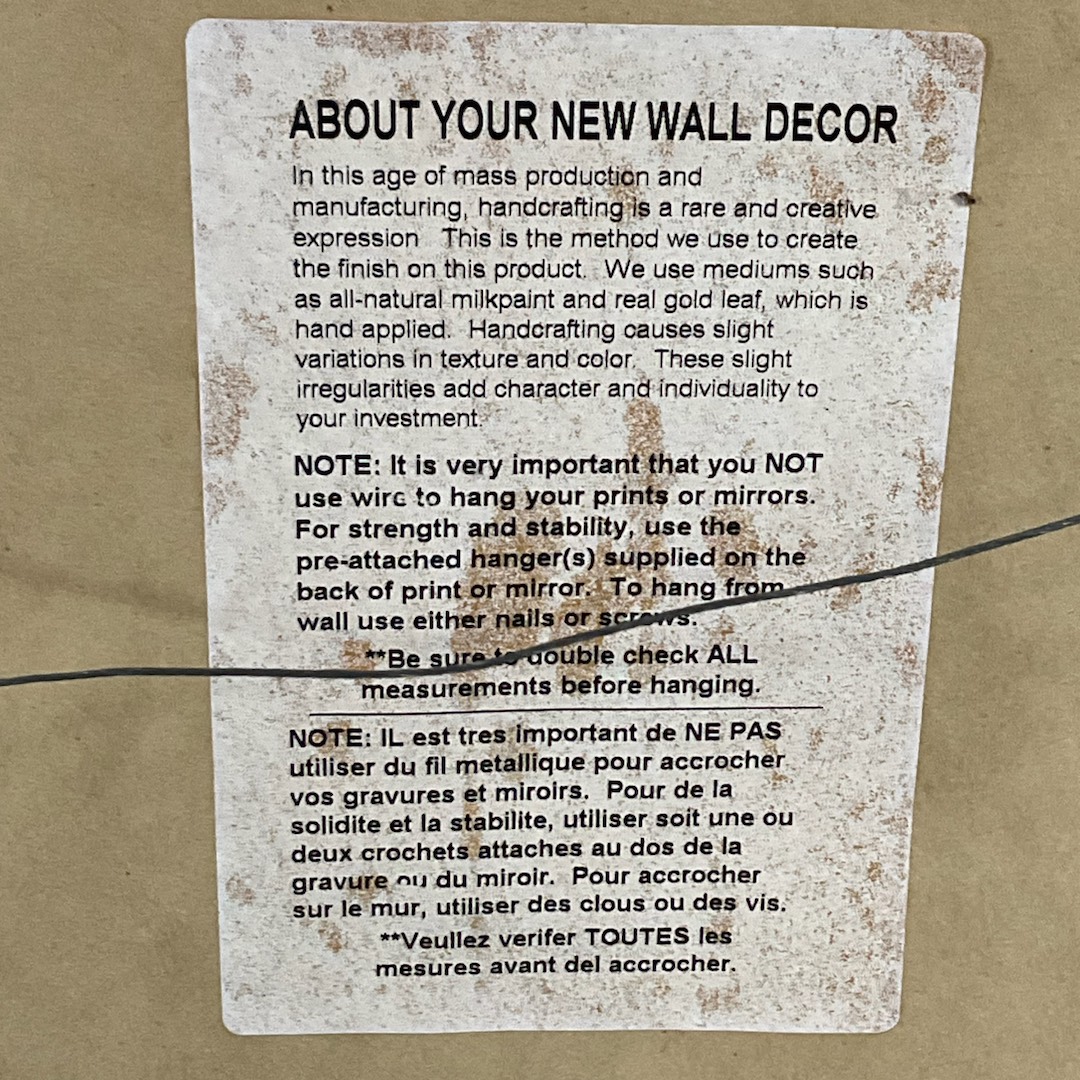 ABOUT YOUR NEW WALL DECOR
In this age of mass production and
manufacturing, handcrafting is a rare and creative
expression This is the method we use to create
the finish on this product. We use mediums such
as all-natural milkpaint and real gold leaf, which is
hand applied. Handcrafting causes slight
variations in texture and color. These slight
irregularities add character and individuality to
your investment.
NOTE: It is very important that you NOT
use wire to hang your prints or mirrors.
For strength and stability, use the
pre-attached hanger(s) supplied on the
back of print or mirror. To hang from
wall use either nails or screws.
**Be sure to double check ALL
measurements before hanging.
NOTE: IL est tres important de NE PAS
utiliser du fil metallique pour accrocher
vos gravures et miroirs. Pour de la
solidite et la stabilite, utiliser soit une ou
deux crochets attaches au dos de la
gravure ou du miroir. Pour accrocher
sur le mur, utiliser des clous ou des vis.
**Veullez verifer TOUTES les
mesures avant del accrocher.